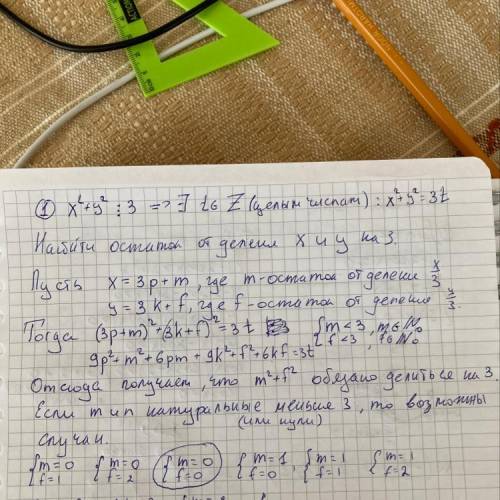 ① x²+y² ⋮ 3 => ∃ t ∈ Z (целым числам) : x²+y²=3t
Найти остаток от деления x и y на 3.
Пусть x = 3p+m, где m-остаток от деления x/3
y = 3k+f, где f-остаток от деления y/3.
Тогда (3p+m)²+(3k+f)²=3t { m<3, m∈N₀ f<3, f∈N₀
9p²+m²+6pm+9k²+f²+6kf=3t
Отсюда получает, что m²+f² обязано делиться на 3
Если m и n натуральные меньше 3, то возможны
(или нули)
случаи.
{ m=0 f=1 { m=0 f=2 { m=0 f=0 { m=1, f=0 { m=1 f=1 { m=1 f=2